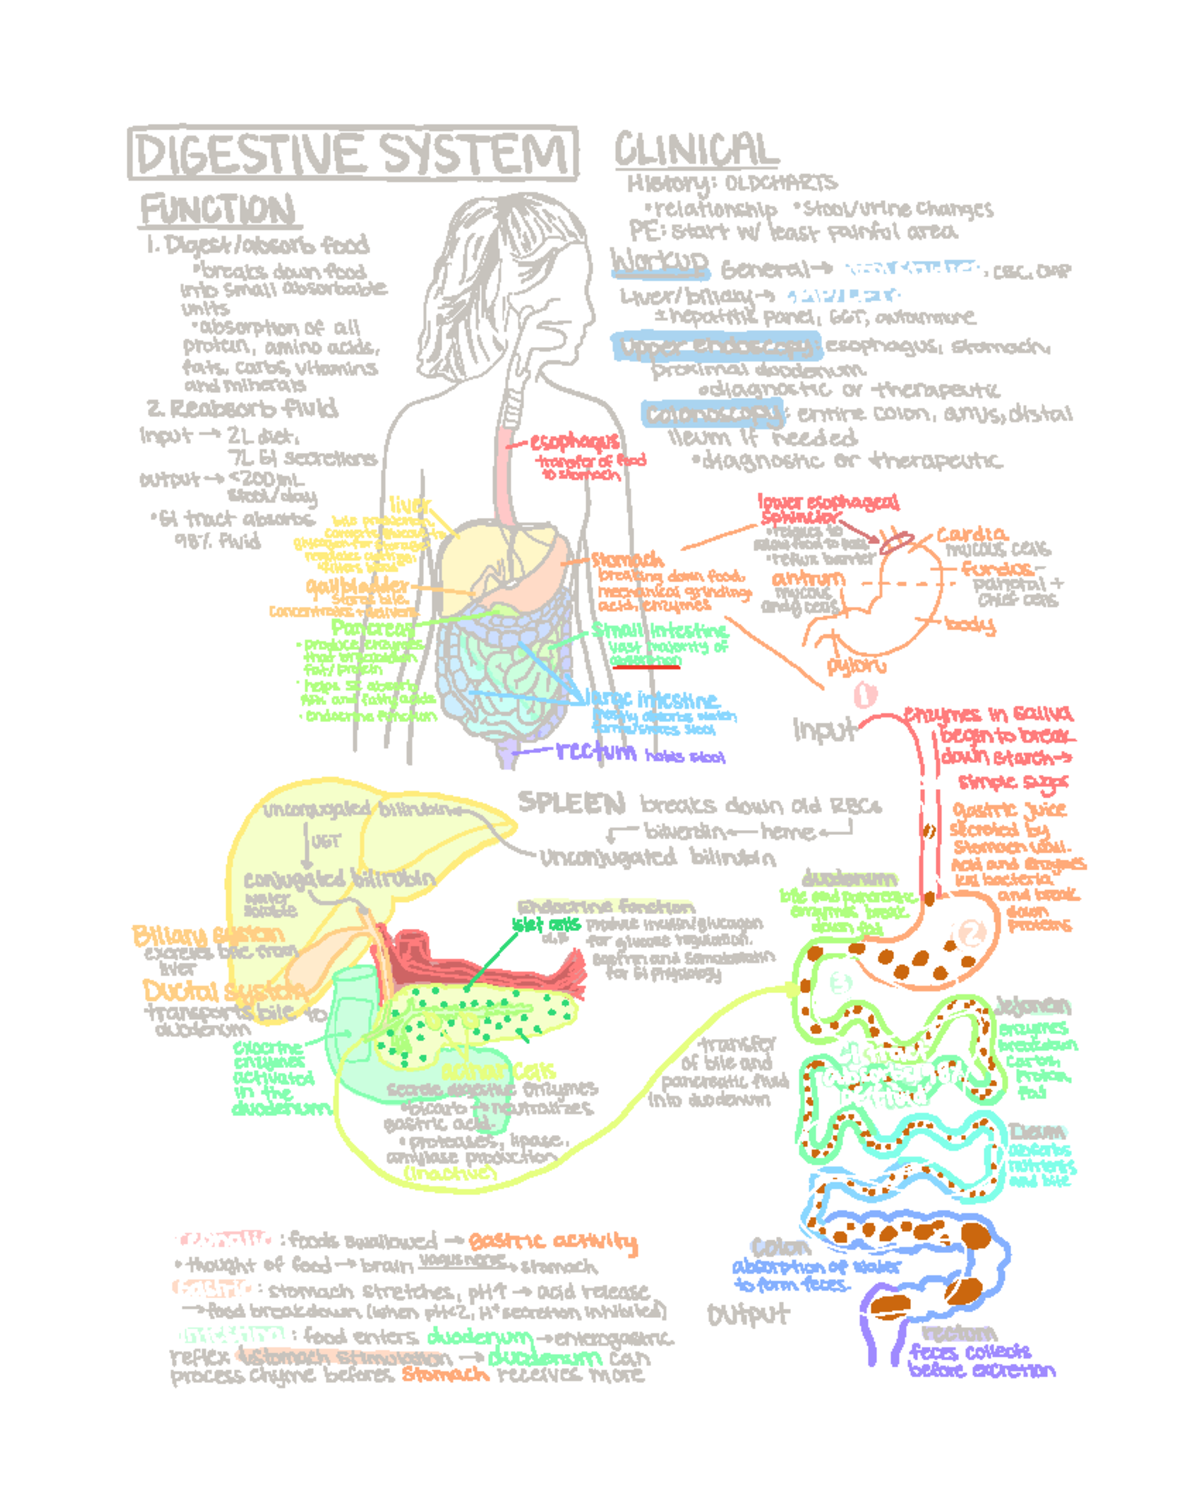 DIGESTIVE SYSTEM
FUNCTION
1. Digest/absorb food
•breaks down food
into small absorbable
units
•absorption of all
protein, amino acids,
fats, carbs, vitamins
and minerals
2. Reabsorb fluid
input → 2L diet,
7L GI secretions
output → <200mL
stool/day
•GI tract absorbs
98% fluid
CLINICAL
History: OLDCHARTS
•relationship •Stool/urine changes
PE: Start w/ least painful area
Workup General→ CBC, CMP
Liver/biliary→ CMP/LFTs
±hepatitis panel, GGT, autoimmune
Upper endoscopy: esophagus, stomach,
proximal duodenum
•diagnostic or therapeutic
Colonoscopy: entire colon, anus, distal
ileum if needed
•diagnostic or therapeutic
esophagus
transfer of food
to stomach
liver
bile production,
gallbladder
stores bile,
concentrates
Pancreas
•produce enzymes
that breakdown
fat/protein
•helps SI absorb
and fatty acids
•endocrine function
stomach
breaking down food,
mechanical grinding,
acid, enzymes
Small intestine
vast majority of
absorption
large intestine
mostly absorbs water,
forms/stores stool
rectum holds stool
lower esophageal
sphincter
•relaxes to
allow food to pass
•reflux barrier
cardia
mucous cells
fundus-
parietal +
chief cells
body
antrum
mucous
and g cells
pyloru
1
input
enzymes in saliva
begin to break
down starch→
simple sugs
gastric juice
secreted by
stomach wall.
Acid and enzymes
kill bacteria
and break
down
proteins
2
duodenum
bile and pancreatic
enzymes break
down fat
3
Jejunem
enzymes
breakdown
carbs,
protein,
fat
Ileum
absorbs
nutrients
and bile
Colon
absorption of water
to form feces.
output
rectum
feces collects
before excretion
SPLEEN breaks down old RBCs
biliverdin ← heme ←
unconjugated bilirubin
unconjugated bilirubin
UGT
conjugated bilirubin
water
soluble
Biliary system
excretes bile from
liver
Ductal system
transports bile to
duodenum
exocrine
enzymes
activated
in the
duodenum
Endocrine function
islet cells produce insulin/glucagon
for glucose regulation.
Gastrin and Somatostatin
for GI Physiology
acinar cells
secrete digestive enzymes
•bicarb → neutralizes
gastric acid.
•proteases, lipase,
amylase production
(inactive)
transfer
of bile and
pancreatic fluid
into duodenum
Cephalic: foods swallowed → gastric activity
•thought of food → brain vagus nerve → stomach
Gastric: stomach stretches, pH↑ → acid release
→food breakdown (when pH<2, H+ secretion inhibited)
Intestinal: food enters duodenum → enterogastric
reflex ↓stomach stimulation → duodenum can
process chyme before stomach receives more